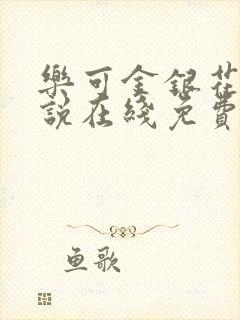 樂可金銀花
說在綫免費
鱼歌